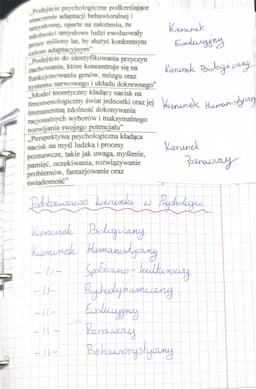 „Podejście psychologiczne podkreślające
znaczenie adaptacji behawioralnej i
umysłowej, oparte na założeniu, że
zdolności umysłowe ludzi ewoluowały
przez miliony lat, by służyć konkretnym
celom adaptacyjnym"
Kierunek
Ewolucyjny
„Podejście do identyfikowania przyczyn
zachowania, które koncentruje się na
funkcjonowaniu genów, mózgu oraz
systemu nerwowego i układu dokrewnego"
Kierunek Biologiczny
„Model teoretyczny kładący nacisk na
fenomenologiczny świat jednostki oraz jej
immanentną zdolność dokonywania
racjonalnych wyborów i maksymalnego
rozwijania swojego potencjału"
Kierunek Humanistyczny
„Perspektywa psychologiczna kładąca
nacisk na myśl ludzką i procesy
poznawcze, takie jak uwaga, myślenie,
pamięć, oczekiwania, rozwiązywanie
problemów, fantazjowanie oraz
świadomość"
Kierunek
Poznawczy
Podstawowe kierunki w Psychologii
Kierunek Biologiczny
Kierunek Humanistyczny
-||- Społeczno-kulturowy
-||- Psychodynamiczny
-||- Ewolucyjny
-||- Poznawczy
-||- Behawiorystyczny